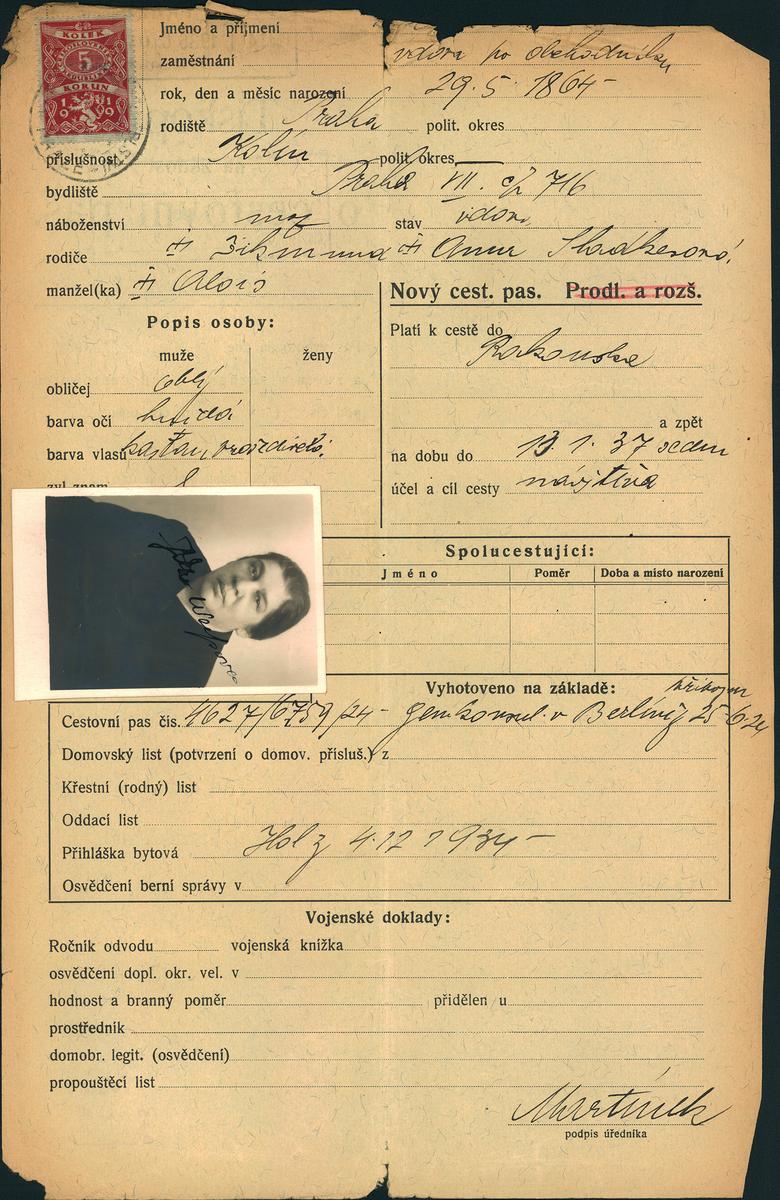 KOLEK
5
KORUN
1919
Jméno a příjmení
zaměstnání vdova po obchodníku
rok, den a měsíc narození 29. 5. 1864 –
rodiště Praha polit. okres
příslušnost Kolín polit. okres
bydliště Praha VII. čp 716
náboženství moj stav vdova
rodiče Zikmund Anna
manžel(ka) Alois
Nový cest. pas. Prodl. a rozš.
Popis osoby:
Platí k cestě do
Rakouska
muže ženy
obličej oblý
barva očí hnědá
barva vlasů kaštan, prošedivělé
zvl. znam.
a zpět
na dobu do 13. 1. 37
účel a cíl cesty návštěva
Spolucestující:
Jméno Poměr Doba a místo narození
Vyhotoveno na základě:
Cestovní pas čís. 4627/6759/24 – gen. konsul. v Berlíně 25 6 24
Domovský list (potvrzení o domov. přísluš.) z
Křestní (rodný) list
Oddací list
Přihláška bytová Hol z 4. 12 1934 –
Osvědčení berní správy v
Vojenské doklady:
Ročník odvodu vojenská knížka
osvědčení dopl. okr. vel. v
hodnost a branný poměr přidělen u
prostředník
domobr. legit. (osvědčení)
propouštěcí list
Martínek
podpis úředníka